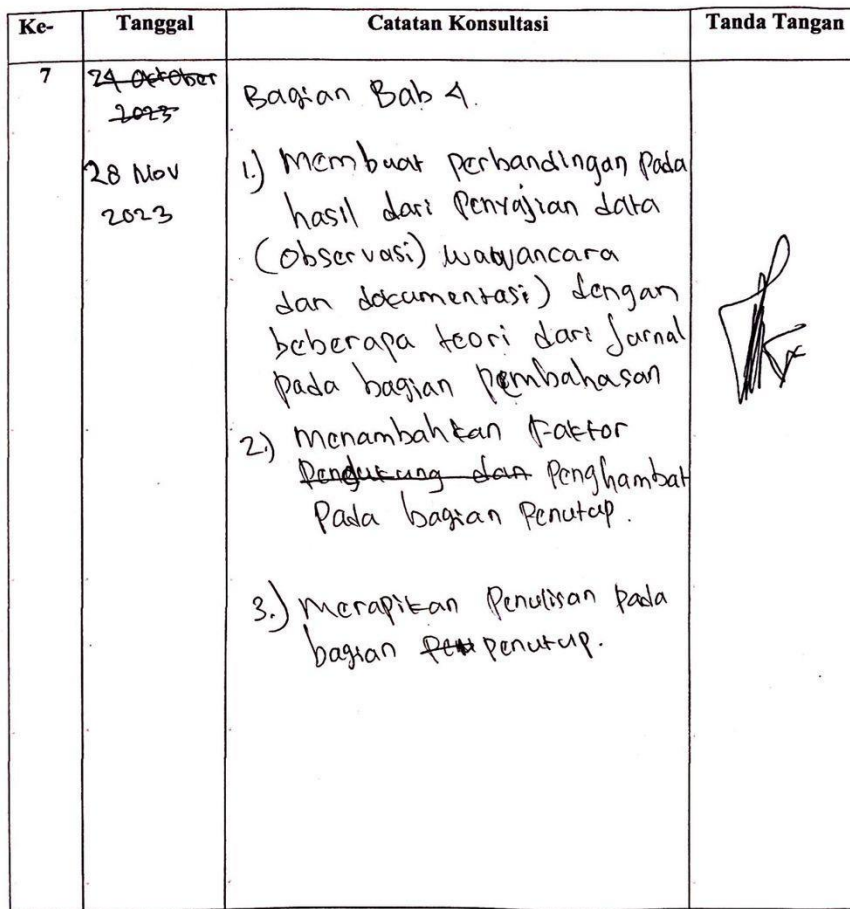 Ke- Tanggal Catatan Konsultasi Tanda Tangan
7
24 Oktober
2023
28 Nov
2023
Bagian Bab 4.
1.) Membuat perbandingan pada
hasil dari Penyajian data
(observasi) wawancara
dan documentasi) dengan
beberapa teori dari Jurnal
pada bagian pembahasan
2.) Menambahkan Faktor
Pendukung dan Penghambat
Pada bagian Penutup.
3.) Merapikan Penulisan pada
bagian Pen penutup.